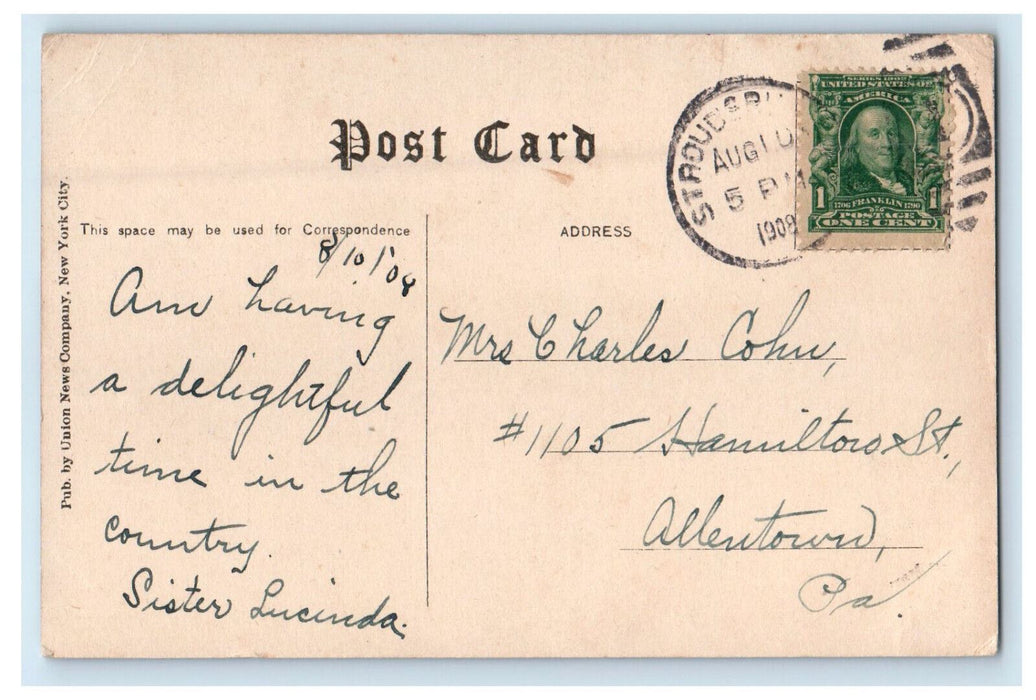 Post Card
This space may be used for Correspondence
ADDRESS
Pub. by Union News Company, New York City.
8/10/08
Am having
a delightful
time in the
country.
Sister Lucinda.
Mrs Charles Cohn,
#1105 Hamilton St.,
Allentown,
Pa.
STROUDSBU
AUG 10
5 PM
1908
SERIES 1902
UNITED STATES OF
AMERICA
1
1706 FRANKLIN 1790
POSTAGE
ONE CENT